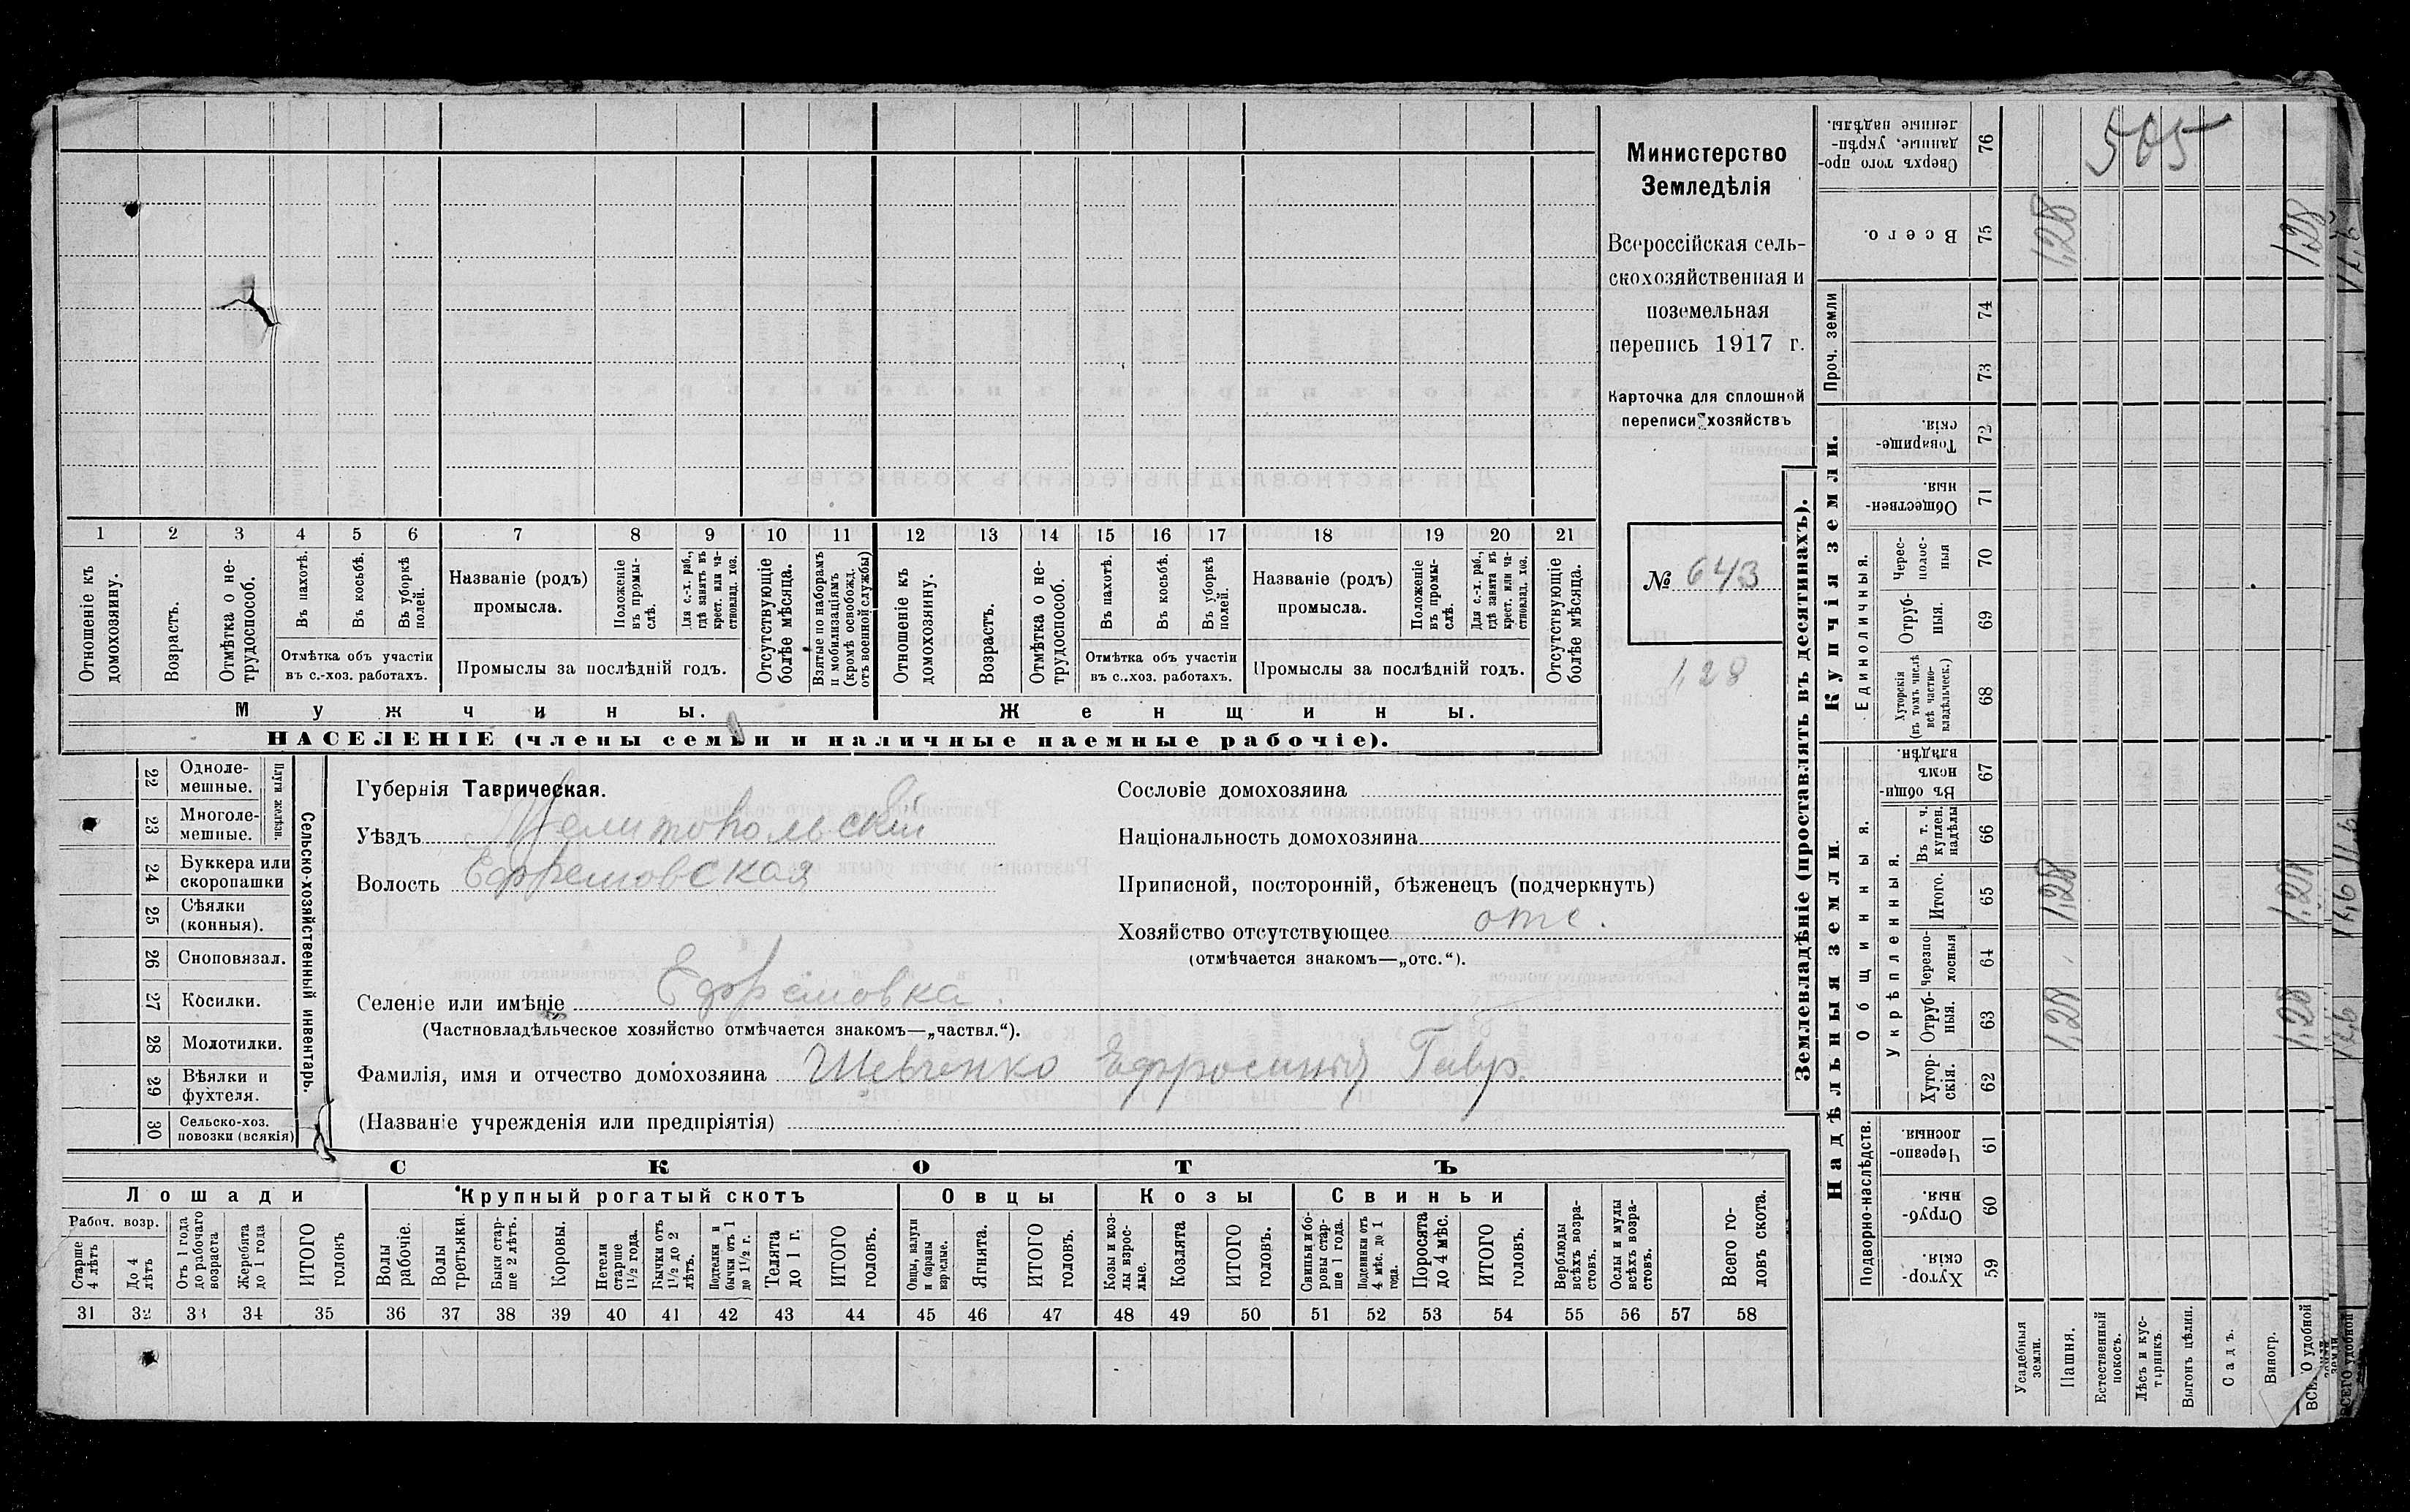 Министерство
Земледѣлія
Всероссійская сель-
скохозяйственная и
поземельная
перепись 1917 г.
Карточка для сплошной
переписи хозяйствъ
№ 643
1,28
565
1 2 3 4 5 6 7 8 9 10 11 12 13 14 15 16 17 18 19 20 21
Отношеніе къ домохозяину.
Возрастъ.
Отмѣтка о не-трудоспособ.
Въ пахотѣ.
Въ косьбѣ.
Въ уборкѣ полей.
Отмѣтка объ участіи
въ с.-хоз. работахъ.
Названіе (родъ)
промысла.
Положеніе въ промы-слѣ.
Для с.-х. раб., гдѣ занятъ въ крест. или ча-стновлад. хоз.
Промыслы за послѣдній годъ.
Отсутствующіе болѣе мѣсяца.
Взятые по наборамъ и мобилизаціямъ (кромѣ освобожд. отъ военной службы)
Отношеніе къ домохозяину.
Возрастъ.
Отмѣтка о не-трудоспособ.
Въ пахотѣ.
Въ косьбѣ.
Въ уборкѣ полей.
Отмѣтка объ участіи
въ с..хоз. работахъ.
Названіе (родъ)
промысла.
Положеніе въ промы-слѣ.
Для с.-х. раб., гдѣ занята въ крест. или ча-стновлад. хоз.
Промыслы за послѣдній годъ.
Отсутствующіе болѣе мѣсяца.
Мужчины.
Женщины.
НАСЕЛЕНІЕ (члены семьи и наличные наемные рабочіе).
Сельско-хозяйственный инвентарь.
Плуги желѣзн.
22 Одноле-мешные.
23 Многоле-мешные.
24 Буккера или скоропашки
25 Сѣялки (конныя).
26 Сноповязал.
27 Косилки.
28 Молотилки.
29 Вѣялки и фухтеля.
30 Сельско-хоз. повозки (всякія)
Губернія Таврическая.
Уѣздъ Мелитопольскій
Волость Ефремовская
Селеніе или имѣніе Ефремовка.
(Частновладѣльческое хозяйство отмѣчается знакомъ—„частвл.“).
Фамилія, имя и отчество домохозяина Шевченко Ефросинія Гавр.
(Названіе учрежденія или предпріятія)
Сословіе домохозяина
Національность домохозяина
Приписной, посторонній, бѣженецъ (подчеркнуть)
Хозяйство отсутствующее отс.
(отмѣчается знакомъ—„отс.“).
СКОТЪ
Лошади
Крупный рогатый скотъ
Овцы
Козы
Свиньи
Рабоч. возр.
Старше 4 лѣтъ
До 4 лѣтъ
Отъ 1 года до рабочаго возраста
Жеребята до 1 года
ИТОГО головъ
Волы рабочіе.
Волы третьяки.
Быки стар-ше 2 лѣтъ.
Коровы.
Нетели старше 1½ года.
Бычки отъ 1½ до 2 лѣтъ.
Подтелки и бычки отъ 1 до 1½ г.
Телята до 1 г.
ИТОГО головъ.
Овцы, валухи и бараны взрослые.
Ягнята.
ИТОГО головъ.
Козы и коз-лы взрос-лые.
Козлята
ИТОГО головъ.
Свиньи и бо-ровы стар-ше 1 года.
Подсвинки отъ 4 мѣс. до 1 года.
Поросята до 4 мѣс.
ИТОГО головъ.
Верблюды всѣхъ возра-стовъ.
Ослы и мулы всѣхъ возра-стовъ.
Всего го-ловъ скота.
31 32 33 34 35 36 37 38 39 40 41 42 43 44 45 46 47 48 49 50 51 52 53 54 55 56 57 58
Землевладѣніе (проставлять въ десятинахъ).
Надѣльныя земли.
Купчія земли.
Проч. земли
Подворно-наслѣдств.
Общинныя.
Укрѣпленныя.
Единоличныя.
76 Сверхъ того про-данные, укрѣп-ленные надѣлы.
75 Всего. 1,28 1,28
74
73
72 Товарище-скія.
71 Обществен-ныя.
70 Черес-полос-ныя
69 Отруб-ныя.
68 Хуторскія (въ томъ числѣ всѣ частно-владѣльческ.)
67 Въ общин-номъ владѣн.
66 Въ т. ч. куплен. надѣлы
65 Итого. 1,28 1,28
64 Черезпо-лосныя
63 Отруб-ныя. 1,28 1,28
62 Хутор-скія.
61 Черезпо-лосныя.
60 Отруб-ныя.
59 Хутор-скія.
Усадебныя земли.
Пашня.
Естественный покосъ.
Лѣсъ и кус-тарникъ.
Выгонъ цѣлин.
Садъ.
Виногр.
ВСЕГО удобной